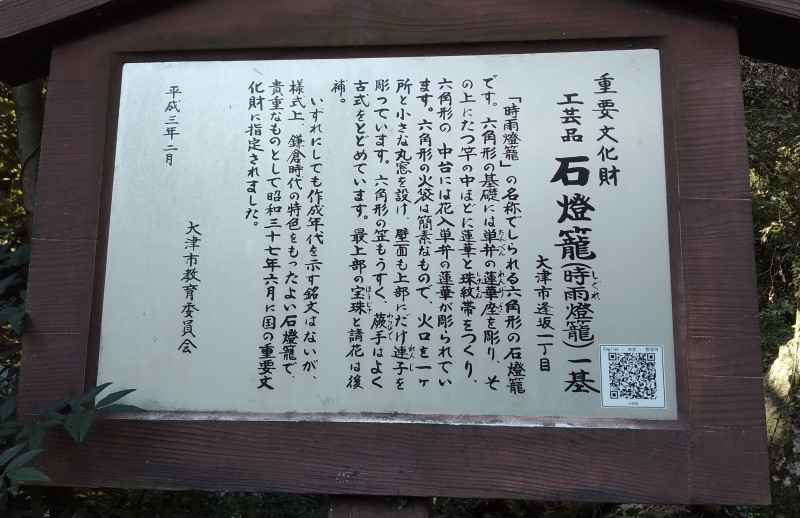 重要文化財
工芸品 石燈籠(時雨燈籠)一基
しぐれ
大津市逢坂一丁目
「時雨燈籠」の名称でしられる六角形の石燈籠
です。六角形の基礎には単弁の蓮華座を彫り、そ
たんべん れんげざ
の上にたつ竿の中ほどに蓮華と珠紋帯をつくり、
しゅもん
六角形の 中台には花入単弁の蓮華が彫られてい
ます。六角形の火袋は簡素なもので、火口を一ヶ
所と小さな丸窓を設け、壁面も上部にだけ連子を
れんじ
彫っています。六角形の笠もうすく、蕨手はよく
わらびて
古式をとどめています。最上部の宝珠と請花は後
ほうじゅ
補。
いずれにしても作成年代を示す銘文はないが、
様式上、鎌倉時代の特色をもったよい石燈籠で、
貴重なものとして昭和三十七年六月に国の重要文
化財に指定されました。
平成三年二月
大津市教育委員会
English ・ 中文 ・ 한국어